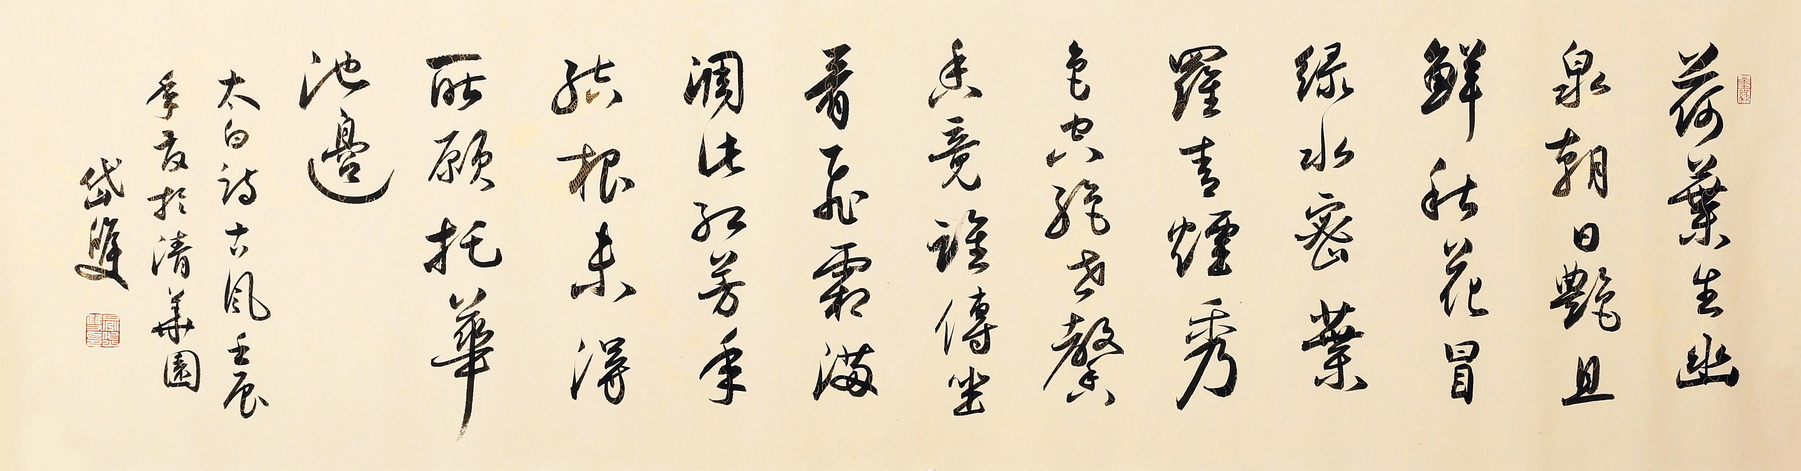 荷葉生幽
泉朝日艷且
鮮秋花冒
緑水密葉
羅青煙秀
色空絶世馨
香竟誰傳坐
看飛霜滿
凋此紅芳年
結根未得
所願托華
池邊
太白詩古風壬辰
季夏於清華園
岱